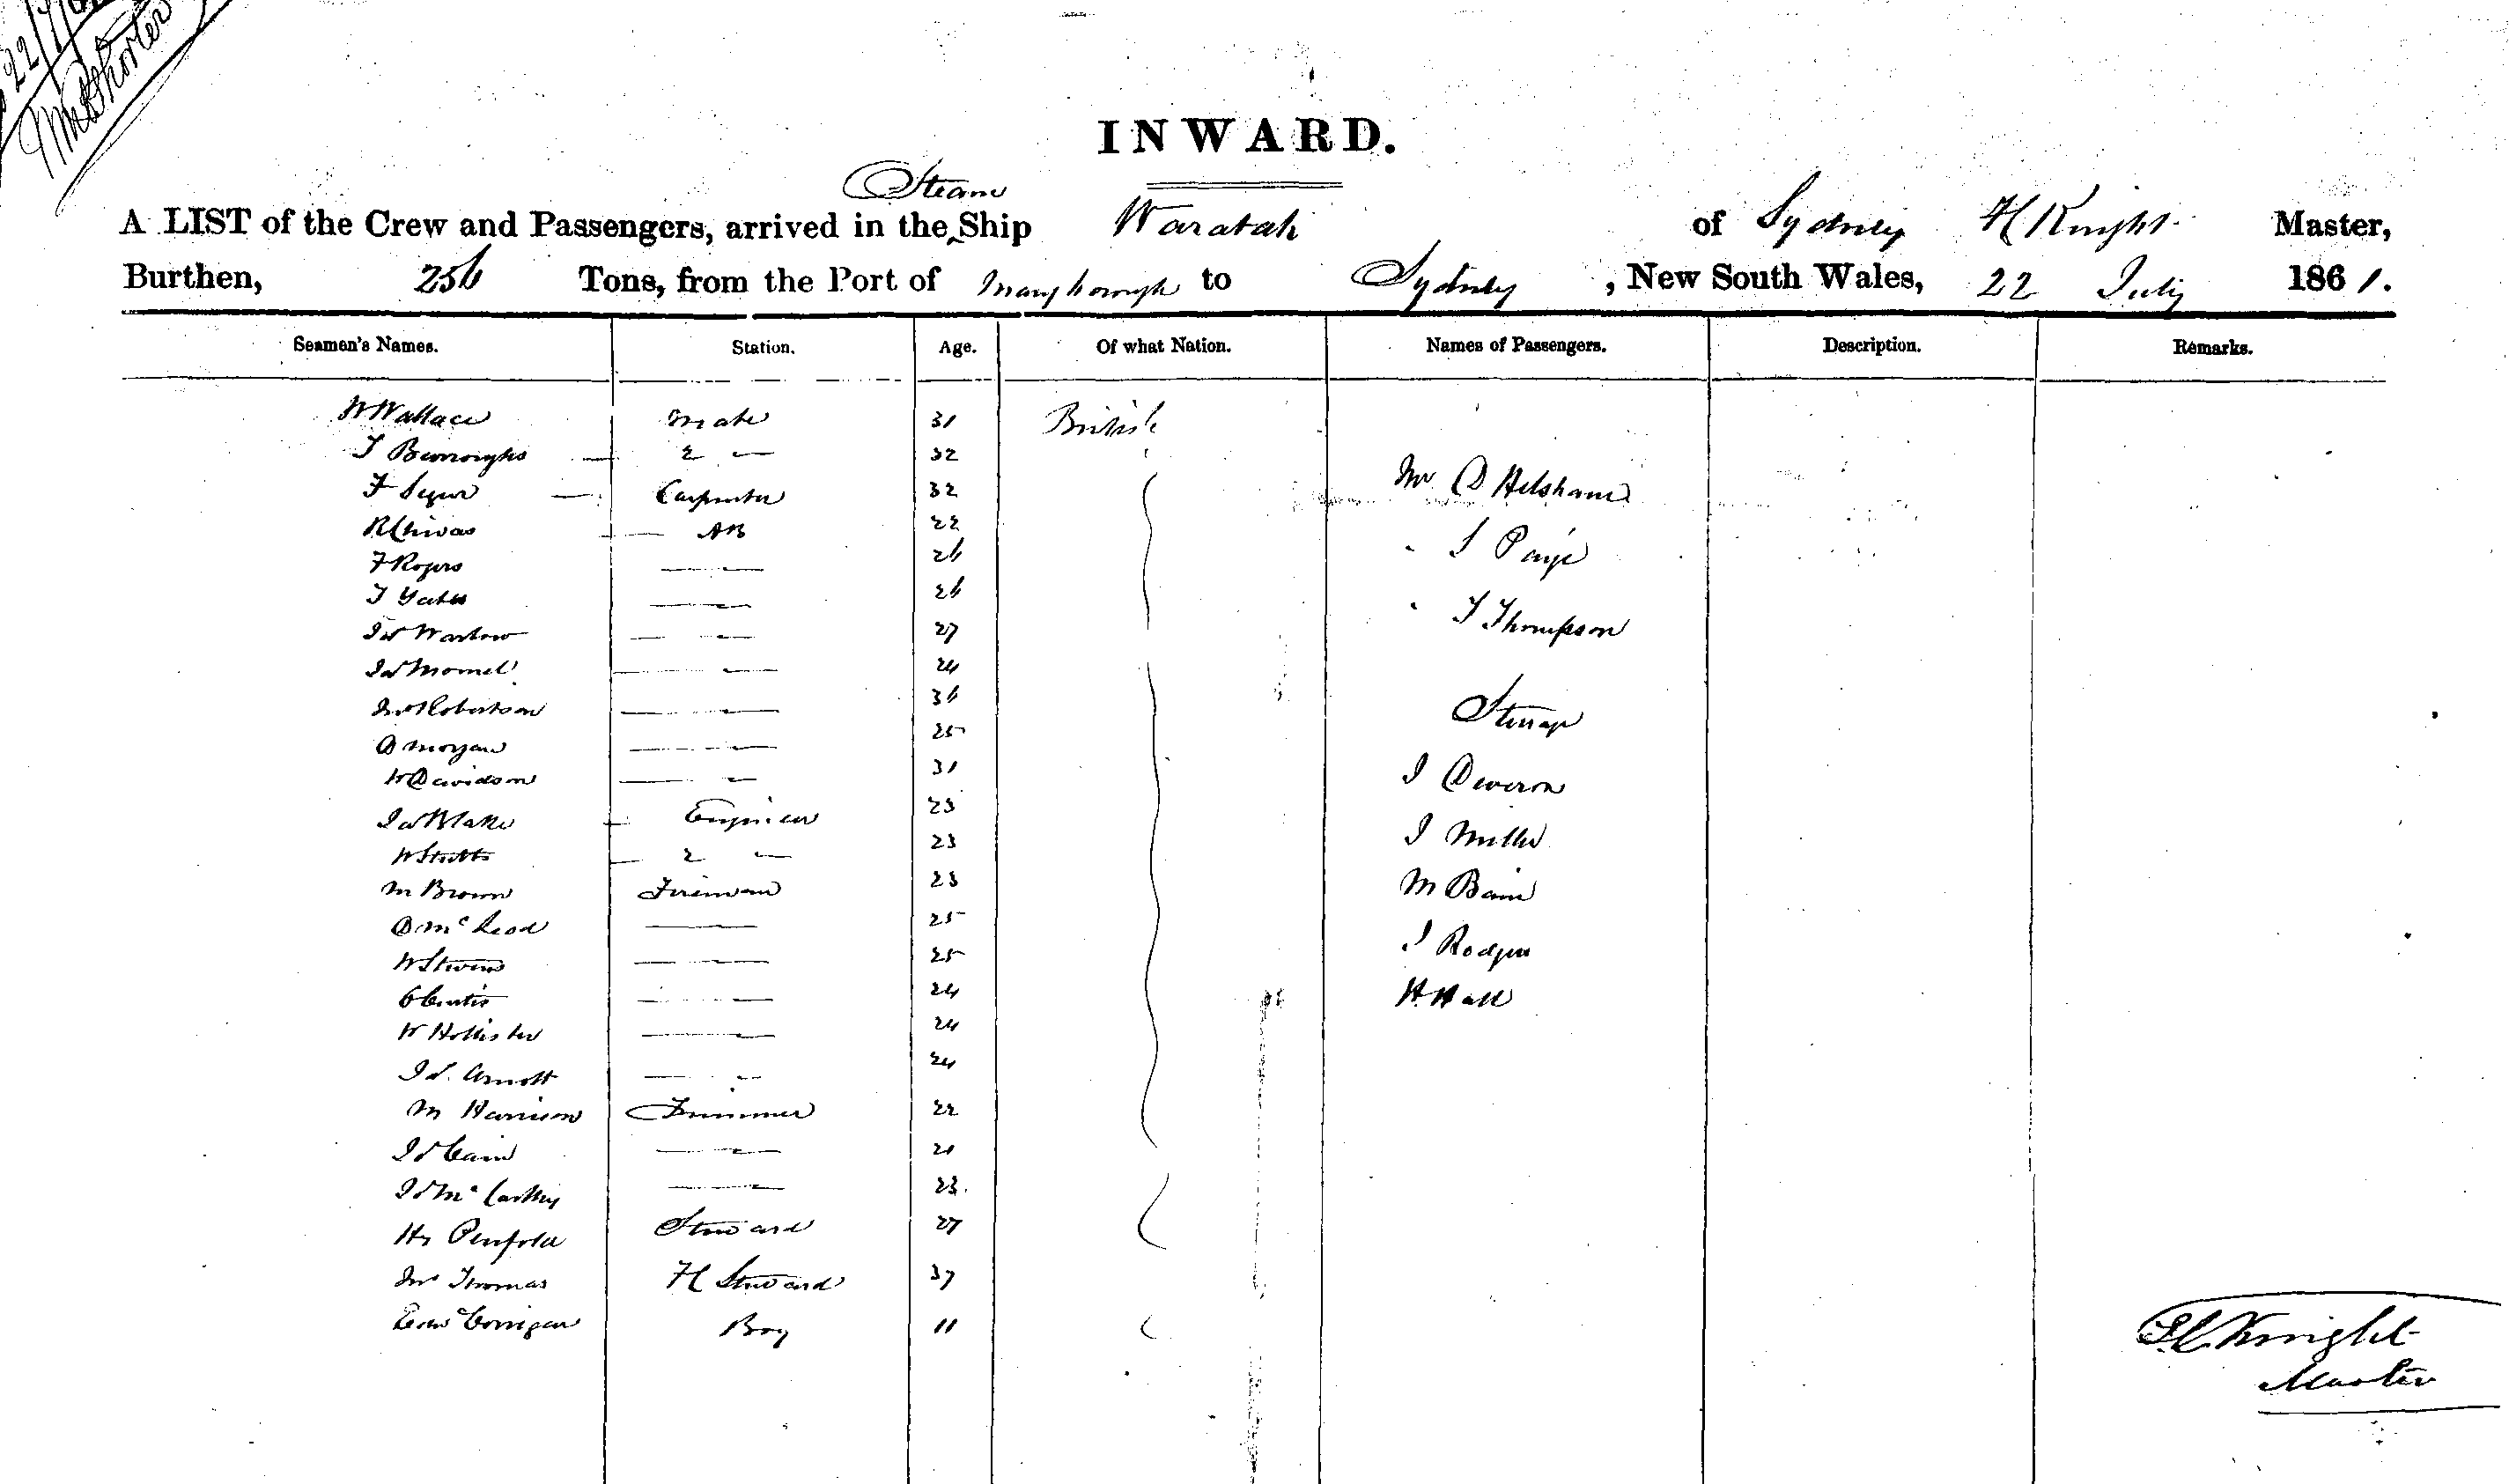 22/7/61
INWARD.
Steam
A LIST of the Crew and Passengers, arrived in the ‸ Ship Waratah of Sydney H Knight Master,
Burthen, 256 Tons, from the Port of Maryborough to Sydney, New South Wales, 22 July 1861.
Seamen's Names. Station. Age. Of what Nation. Names of Passengers. Description. Remarks.
W Wallace Mate 31 British
T Burroughs — 2 — 32
F — Carpenter 32 Mr D Helsham
R Chivas — AB 22
F Rogers — — 26 " S Paige
T Yates — — 26
Js Warlow — — 27 " T Thompson
Js — — 24
Jno Robertson — — 36 Stirrap
D Morgan — — 25
W Davidson — — 31 J Deveron
Js Blake — Engineer 23
W Stutts — 2 — 23 J Miller
M Brown Fireman 23 M Bain
D McLeod — 25
W Stevens — — 25 J Rodger
C Curtis — — 24 H Hall
W Hollister — — 24
Js. Arnott — — 24
M Harrison Trimmer 22
Js Cain — — 21
Js McCarthy — — 23.
Hy Penfold Steward 27
Jno Thomas H Steward 37
Corrigan Boy 11
H Knight
Master